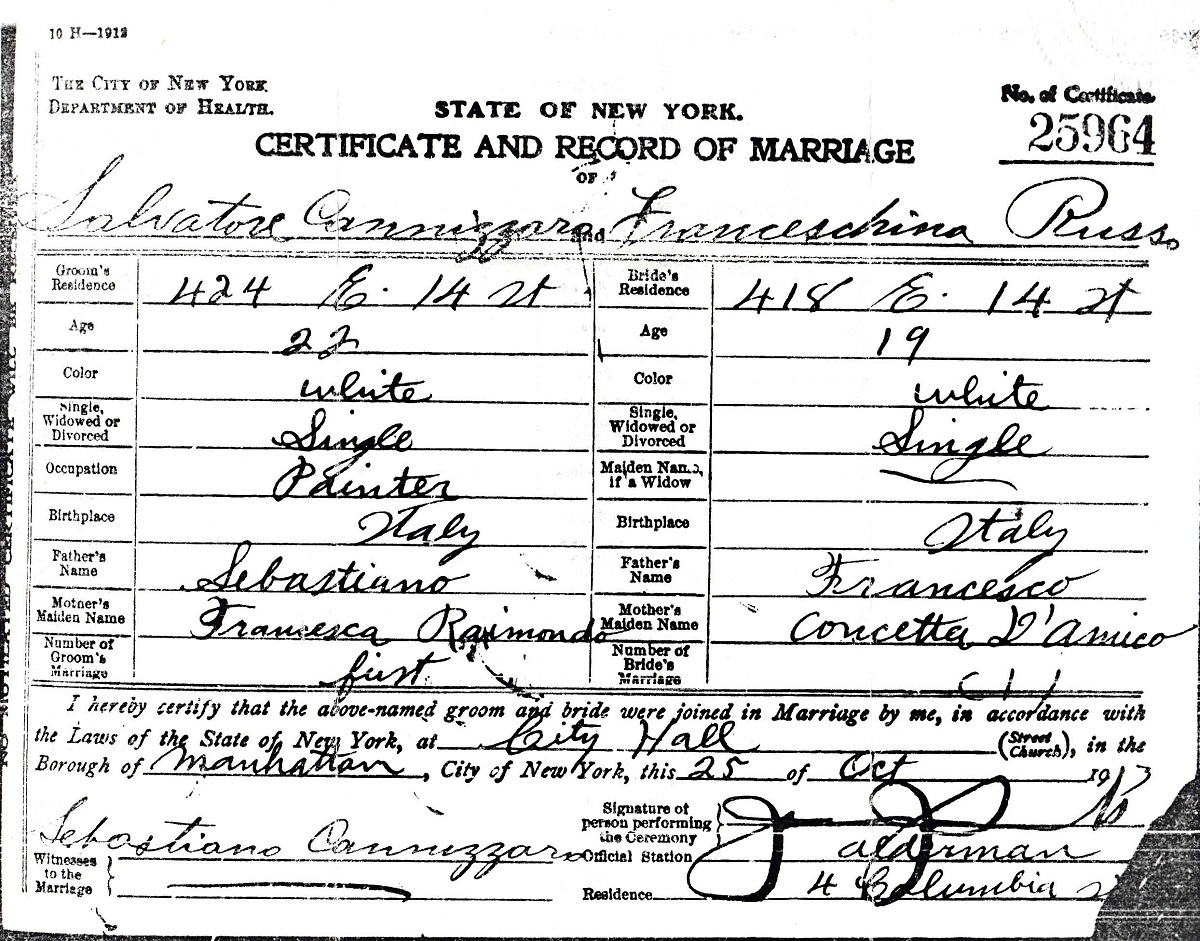 10 H—1912
THE CITY OF NEW YORK
DEPARTMENT OF HEALTH.
STATE OF NEW YORK.
No. of Certificate
25964
CERTIFICATE AND RECORD OF MARRIAGE
OF
Salvatore Cannizzaro and Franceschina Russo
Groom's Residence 424 E. 14 st Bride's Residence 418 E. 14 st
Age 22 Age 19
Color white Color white
Single, Widowed or Divorced Single Single, Widowed or Divorced Single
Occupation Painter Maiden Name, if a Widow
Birthplace Italy Birthplace Italy
Father's Name Sebastiano Father's Name Francesco
Mother's Maiden Name Francesca Raimondo Mother's Maiden Name Concetta D'Amico
Number of Groom's Marriage first Number of Bride's Marriage
I hereby certify that the above-named groom and bride were joined in Marriage by me, in accordance with
the Laws of the State of New York, at City Hall (Street Church), in the
Borough of Manhattan, City of New York, this 25 of Oct 1913
Sebastiano Cannizzaro
Witnesses to the Marriage
Signature of person performing the Ceremony
Official Station alderman
Residence 4 Columbia